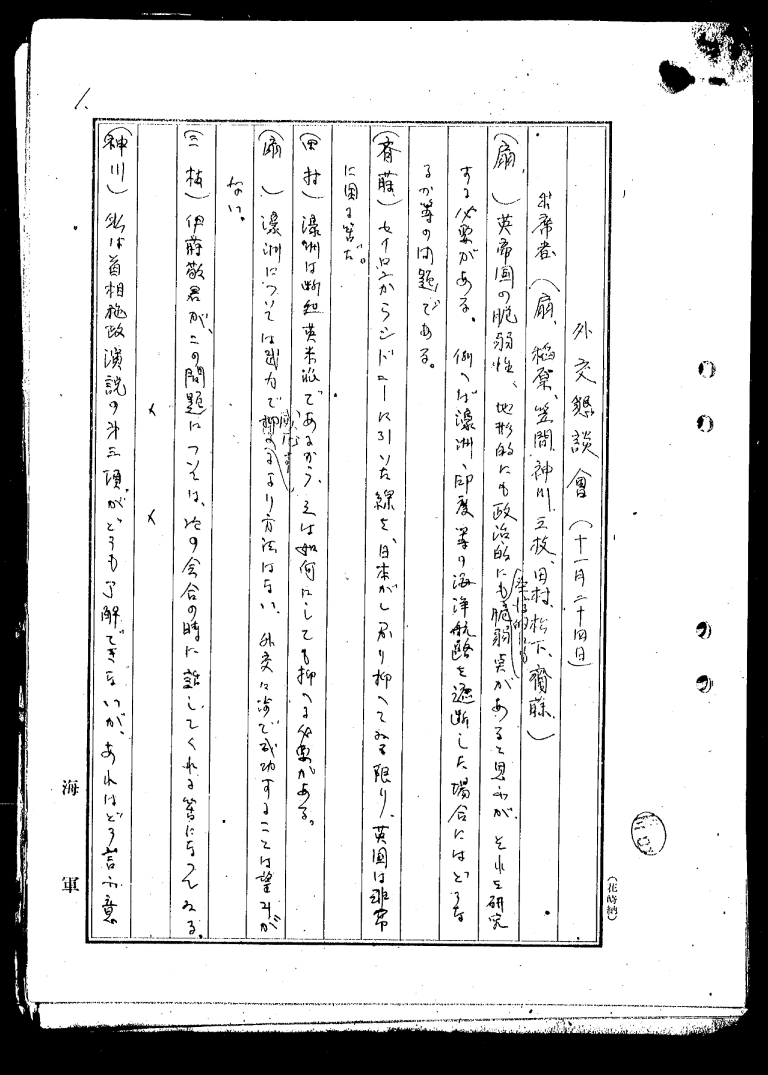 1.
外交懇談會（十一月二十四日）
出席者（扇、稻原、笠間、神川、三枝、田村、松下、齋藤、）
（扇、）英帝国の脆弱性、地形的にも政治的にも脆弱点があると思ふが、それを研究
する必要がある。例へば濠洲、印度等の海洋航路を遮断した場合にはどうな
るか等の問題である。
（齋藤）セイロンからシドニーに引いた線を、日本がしっかり抑へてゐる限り、英国は非常
に困る筈だ。
（田村）濠洲は断然英米派であるから、之は如何にしても抑へる必要がある。
（扇、）濠洲については武力で抑へるより方法はない。外交に於て成功することは望みが
ない。
（三枝）伊藤敬君が、この問題については、次の会合の時に話してくれる筈になつてゐる。
× ×
（神川）私は首相施政演説の第三項がどうも了解できないが、あれはどう言ふ意
海軍
（花崎納）